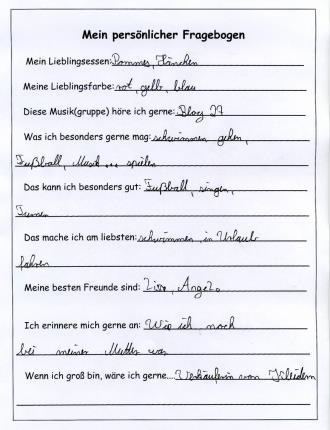 Mein persönlicher Fragebogen
Mein Lieblingsessen: Pommes, Hänchen
Meine Lieblingsfarbe: rot, gelb, blau
Diese Musik(gruppe) höre ich gerne: Blog 27
Was ich besonders gerne mag: schwimmen gehen,
Fußball, Musik ... spielen
Das kann ich besonders gut: Fußball, singen,
Turnen
Das mache ich am liebsten: schwimmen, in Urlaub
fahren
Meine besten Freunde sind: Lisa, Angelo
Ich erinnere mich gerne an: Wie ich noch
bei meiner Mutter war
Wenn ich groß bin, wäre ich gerne... Verkäuferin von Kleidern